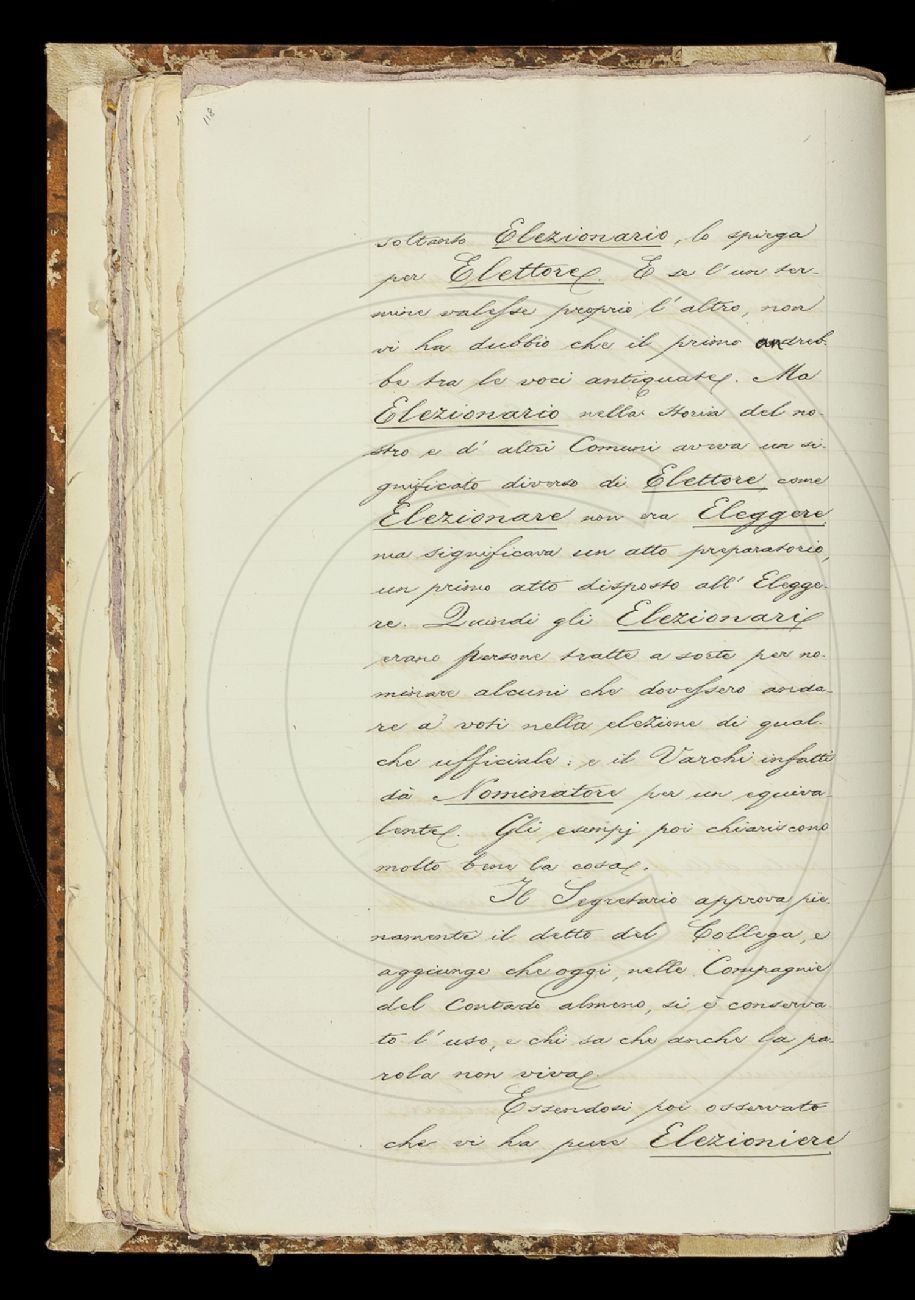 118
soltanto Elezionario, lo spiega
per Elettore. E se l'un ter-
mine valesse proprio l'altro, non
vi ha dubbio che il primo andreb-
be tra le voci antiquate. Ma
Elezionario nella Storia del no-
stro e d'altri Comuni aveva un si-
gnificato diverso di Elettore come
Elezionare non era Eleggere
ma significava un atto preparatorio,
un primo atto disposto all'Elegge-
re. Quindi gli Elezionari
erano persone tratte a sorte per no-
minare alcuni che dovessero anda-
re a' voti nella elezione di qual-
che ufficiale: e il Varchi infatti
dà Nominatore per un equiva-
lente. Gli esempj poi chiariscono
molto bene la cosa.
Il Segretario approva pie-
namente il detto del Collega, e
aggiunge che oggi, nelle Compagnie
del Contado almeno, si è conserva-
to l'uso, e chi sa che anche la pa-
rola non viva.
Essendosi poi osservato
che vi ha pure Elezioniere